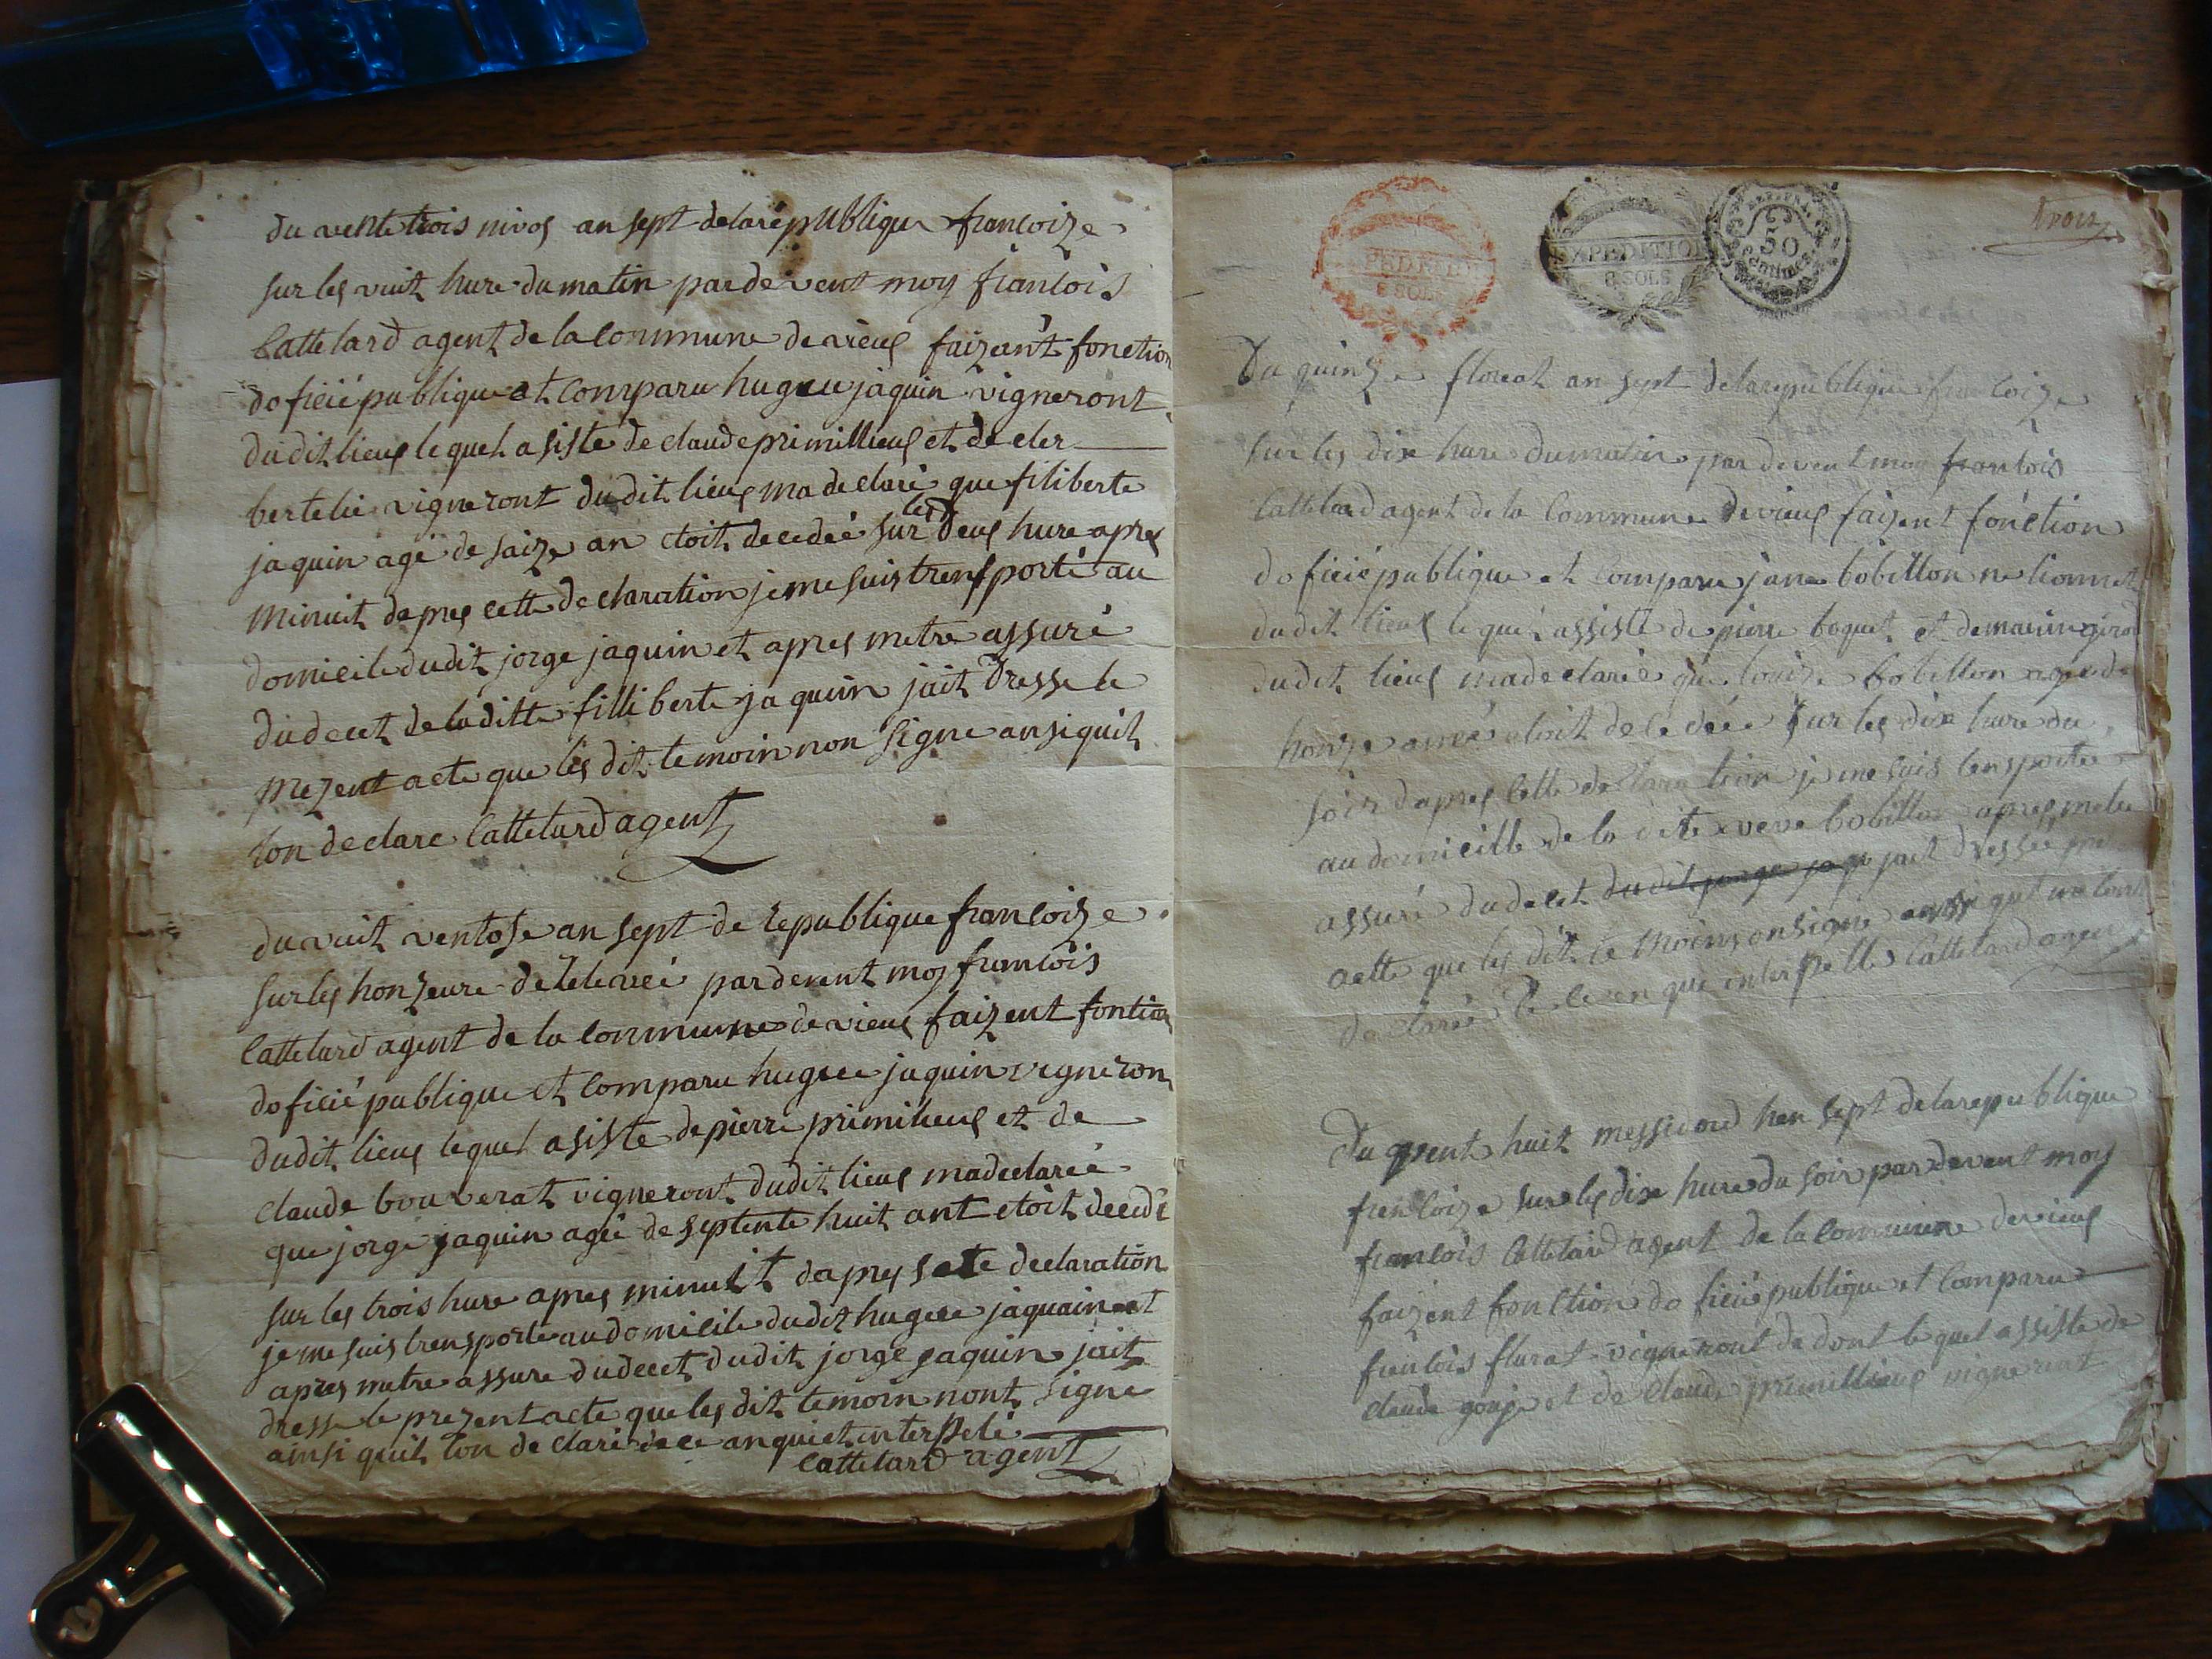 du vente trois nivos an sept de la republique francoize
sur les vuit hure du matin par devent moy francois
Cattelard agent de la Commune de vieus faizent fonction
doficié publique et Comparu hugue jaquin vigneront
dudit lieus le quel a siste de claude primillieus et de cler
bertelié vigneront du dit lieus ma declaré que filiberte
jaquin agé de saize an etoit decedeé sur les deus hure apres
minuit dapres cette declaration je me suis trensporté au
domicile dudit jorge jaquin et apres metre assuré
du decet de laditte filliberte jaquin jait dresse le
prezent acte que les dit temoin non signe ansi quil
lon declare Cattelard agent
du vuit ventose an sept de republique francoize
sur les honzeure de par devent moy francois
Cattelard agent de la Commune de vieus faizent fontion
doficié publique et Comparu hugue jaquin vigneron
dudit lieus lequel asiste de pierre primilieus et de
claude bouverat vigneront dudit lieus ma declareé
que jorge jaquin agée de septente huit ant etoit decedé
sur les trois hure apres minuit dapres sete declaration
je me suis trensporte au domicile dudit hugue jaquain et
apres metre assure du decet dudit jorge jaquin jait
dresse le prezent acte que les dit temoin nont signe
ainsi quil lon declaré de ce anquiet interpelé
Cattelard agent
EXPEDITION
8 SOLS
EXPEDITION
8 SOLS
50
Centimes
trois
Du quinze floreal an sept de la republique francoize
sur les dix hure du matin par devent moy francois
Cattelard agent de la Commune de vieus faizent fonction
doficié publique et Comparu jane bobillon
dudit lieus le quel assisté de pierre boquet et de
dudit lieus ma declareé que louize bobillon ageé de
honze etoit decedeé sur les dix hure du
soir dapres cette declaration je me suis tensporteé
au domicille de la dite veve bobillon apres metre
assuré du decet jait dresseé
actte que les dit temoins on signé
declareé de cen que interpelle Cattelard agent
Du vent huit messidord hen sept de la republique
frencloize sur les dix hure du soir par devent moy
francois Cattelard agent de la Commune de vieus
faizent fonction do ficié publique et Comparu
francois flurat vigneront de dont le quel assiste de
claude gouje et de claude primillieus vigneront